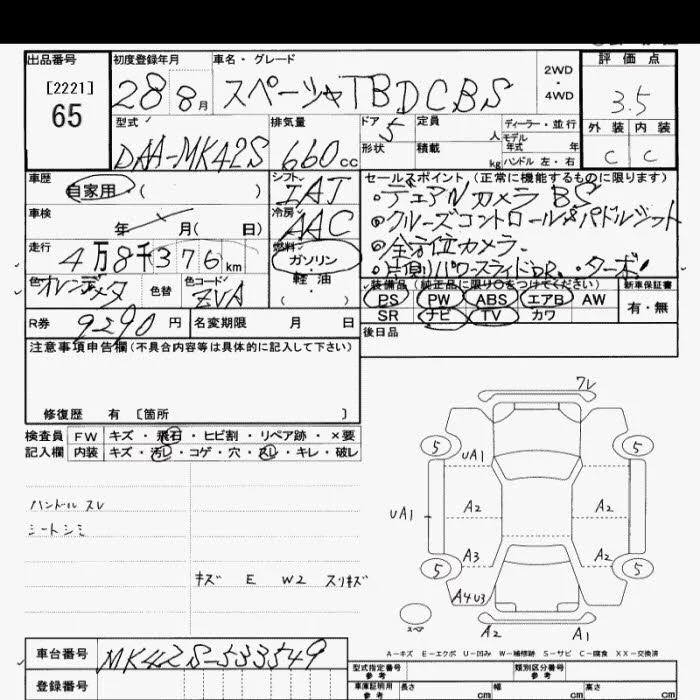 出品番号 初度登録年月 車名・グレード 評価点
[2221]
65
28 8月 スペーシャTBDCBS
2WD
・
4WD
3.5
外装 内装
C C
型式 排気量 ドア 定員 ディーラー・並行
DAA-MK42S 660cc 5 人 モデル年式 年
形状 積載 kg ハンドル 左・右
車歴 シフト セールスポイント (正常に機能するものに限ります)
自家用 ( ) IAT
・デュアルカメラBS
車検 冷房
年 月( 日) AAC
・クルーズコントロール
・全方位カメラ
走行 燃料
4万8千376km ガソリン
・
軽油
( )
・片側パワースライドDR ・ターボ
色 色替 色コード
ZVA
装備品 (純正品に限り○をつけてください) 新車保証書
PS PW ABS エアB AW 有・無
SR ナビ TV カワ
R券 9290円 名変期限 月 日
後日品
注意事項申告欄(不具合内容等は具体的に記入して下さい)
修復歴 有 [箇所 ]
検査員 FW キズ・飛石・ヒビ割・リペア跡・×要
記入欄 内装 キズ・汚レ・コゲ・穴・スレ・キレ・破レ
ハンドル スレ
シートシミ
キズ E W2 スリキズ
フレ
5 5
UA1
UA1 A2 A2
A3 A2
5 5
A4U3
スペア
A2 A1
A-キズ E-エクボ U-凹み W-補修跡 S-サビ C-腐食 XX-交換済
車台番号 MK42S-533549
登録番号
型式指定番号 参考 類別区分番号 参考
車庫証明用 参考 長さ cm 幅 cm 高さ cm